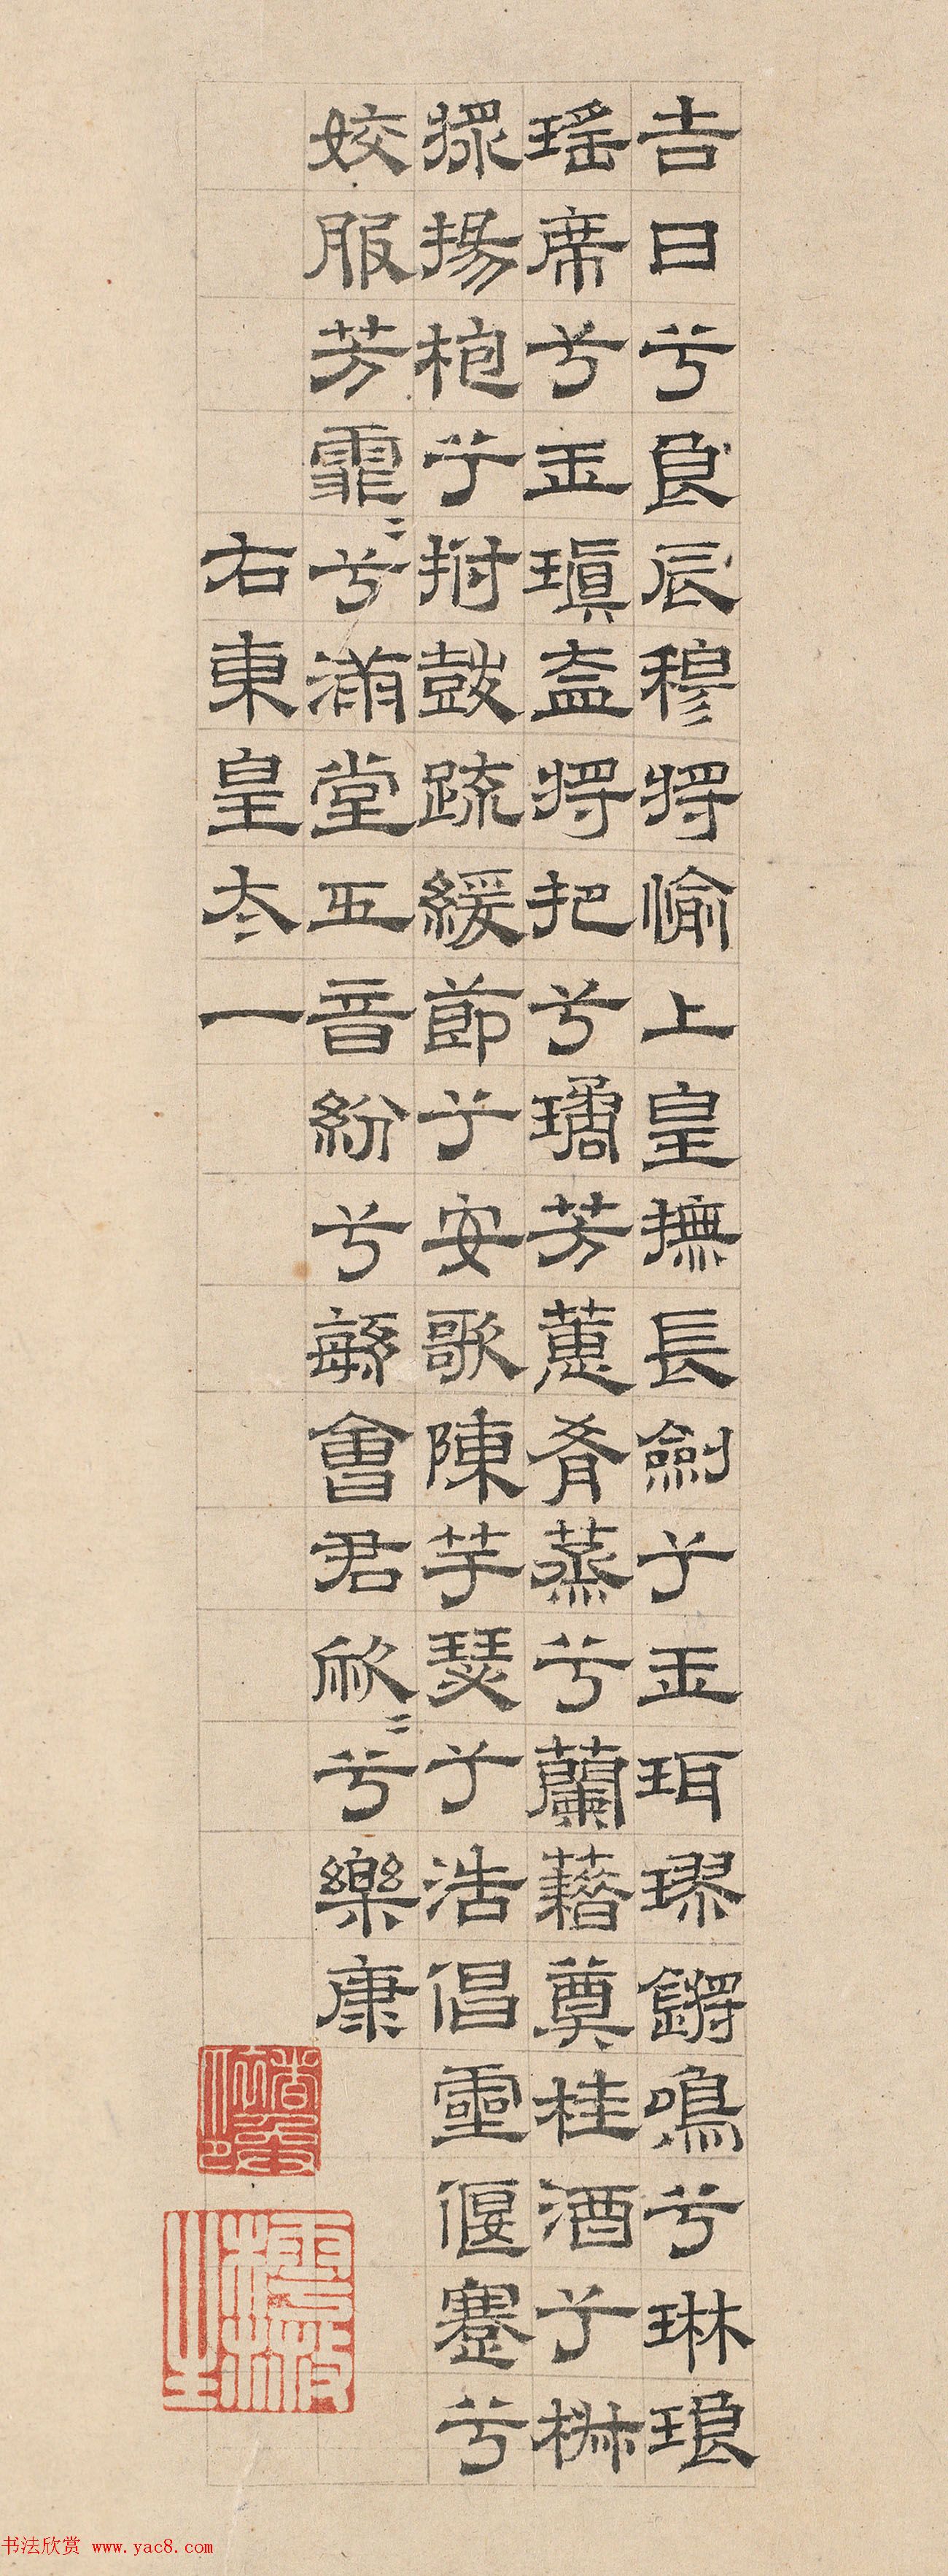 吉日兮良辰穆將愉上皇撫長劍兮玉珥璆鏘鳴兮琳琅
瑤席兮玉瑱盍將把兮璚芳蕙肴蒸兮蘭藉奠桂酒兮椒
漿揚枹兮拊鼓疏緩節兮安歌陳竽瑟兮浩倡靈偃蹇兮
姣服芳霏〻兮滿堂五音紛兮繁會君欣〻兮樂康
右東皇太一
书法欣赏 www.yac8.com